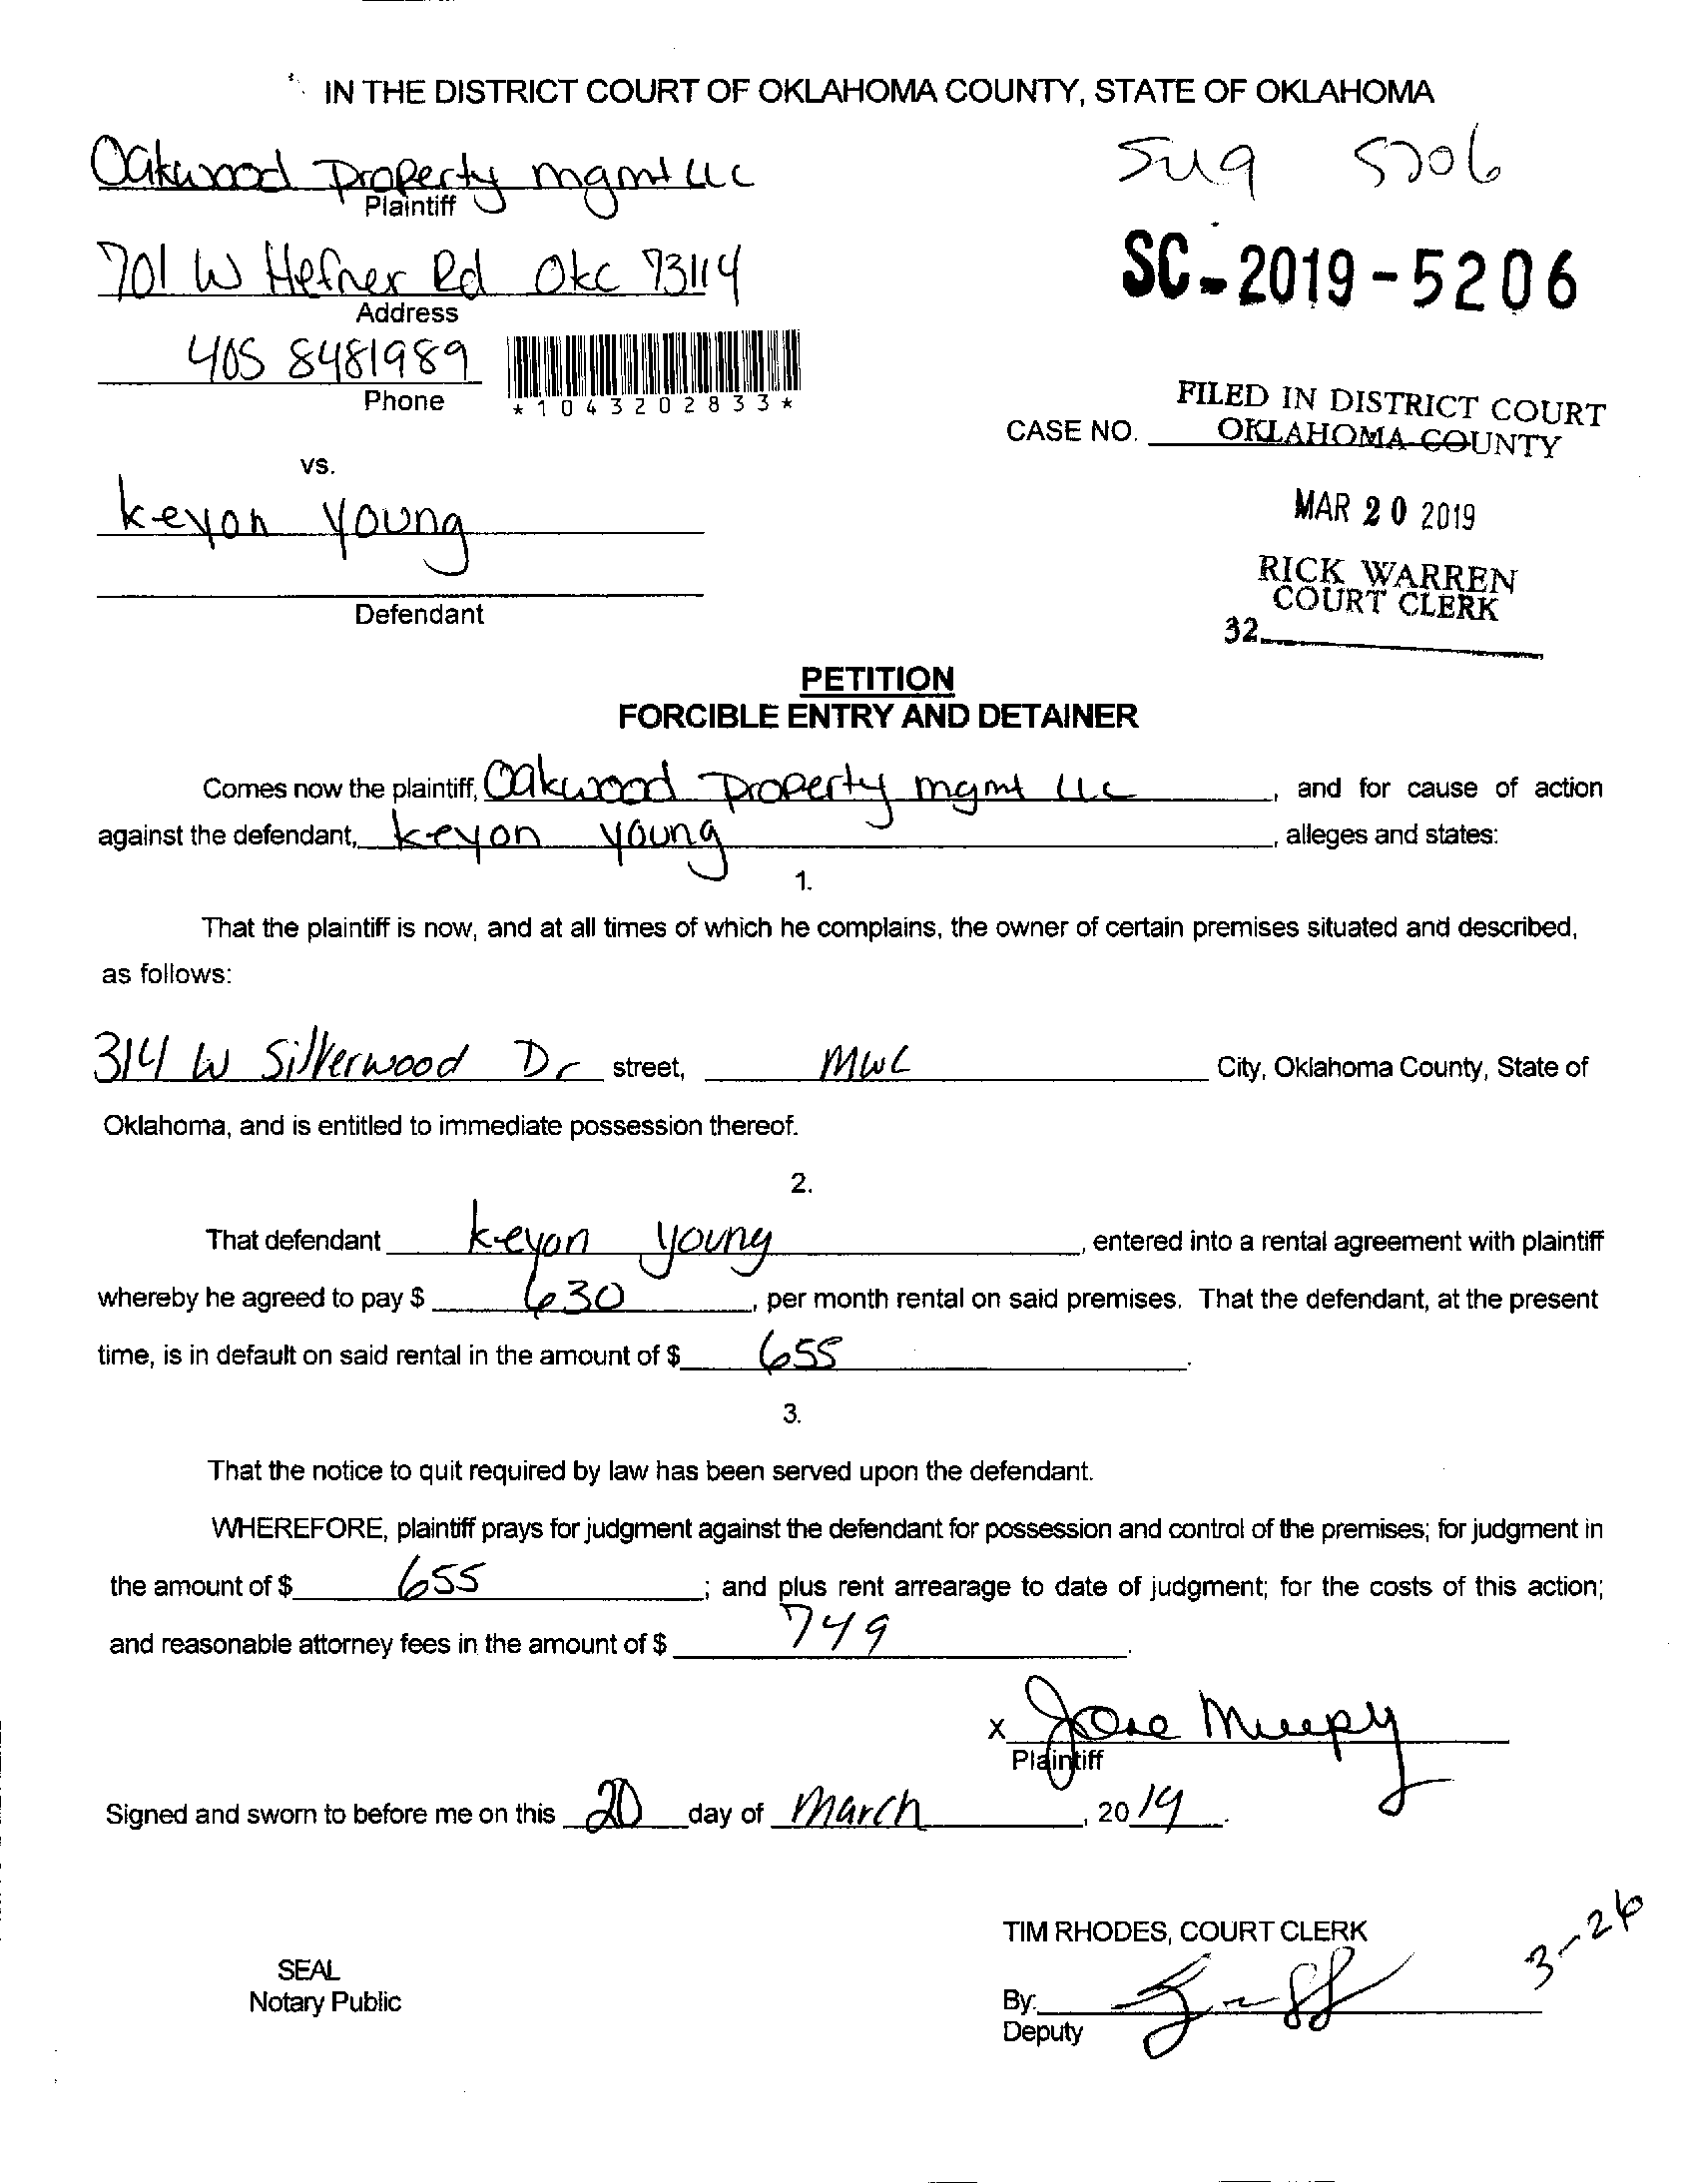 IN THE DISTRICT COURT OF OKLAHOMA COUNTY, STATE OF OKLAHOMA
Oakwood Property mgmt LLC
Plaintiff
5206
701 W Hefner Rd Okc 73114
Address
SC-2019-5206
405 8481989
Phone
*1043202833*
FILED IN DISTRICT COURT
OKLAHOMA COUNTY
CASE NO.
vs.
Keyon Young
Defendant
MAR 20 2019
RICK WARREN
COURT CLERK
32
PETITION
FORCIBLE ENTRY AND DETAINER
Comes now the plaintiff, Oakwood Property mgmt LLC, and for cause of action
against the defendant, Keyon Young, alleges and states:
1.
That the plaintiff is now, and at all times of which he complains, the owner of certain premises situated and described,
as follows:
314 W Silverwood Dr street, MWC City, Oklahoma County, State of
Oklahoma, and is entitled to immediate possession thereof.
2.
That defendant Keyon Young, entered into a rental agreement with plaintiff
whereby he agreed to pay $ 630, per month rental on said premises. That the defendant, at the present
time, is in default on said rental in the amount of $ 655.
3.
That the notice to quit required by law has been served upon the defendant.
WHEREFORE, plaintiff prays for judgment against the defendant for possession and control of the premises; for judgment in
the amount of $ 655; and plus rent arrearage to date of judgment; for the costs of this action;
and reasonable attorney fees in the amount of $ 749.
X
Plaintiff
Signed and sworn to before me on this 20 day of March, 2019.
TIM RHODES, COURT CLERK
3-26
SEAL
Notary Public
By:
Deputy